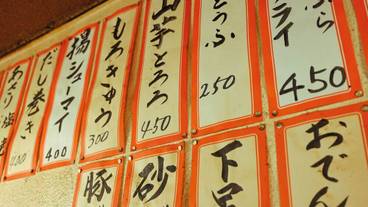 ぷら
フライ
450
とうふ
250
山芋とろろ
450
もろきゅう
300
揚シューマイ
400
だし巻き
400
あさり塩
おでん
下
砂
豚